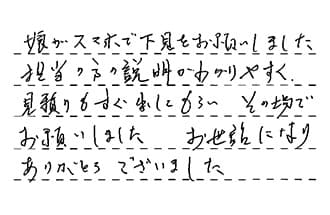 娘がスマホで下見をお願いしました
担当の方の説明がわかりやすく、
見積りもすぐ出してもらい その場で
お願いしました お世話になり
ありがとうございました